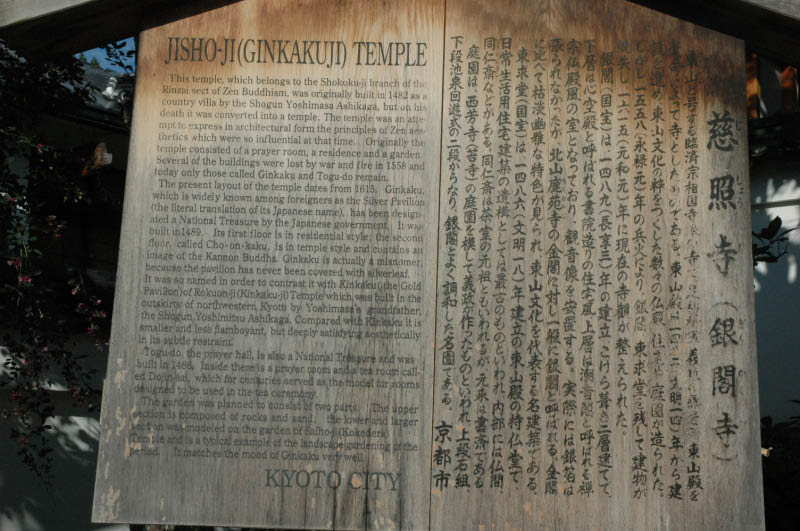 JISHO-JI(GINKAKUJI) TEMPLE
This temple, which belongs to the Shokoku-ji branch of the
Rinzai sect of Zen Buddhism, was originally built in 1482 as a
country villa by the Shogun Yoshimasa Ashikaga, but on his
death it was converted into a temple. The temple was an atte-
mpt to express in architectural form the principles of Zen aes-
thetics which were so influential at that time. Originally the
temple consisted of a prayer room, a residence and a garden.
Several of the buildings were lost by war and fire in 1558 and
today only those called Ginkaku and Togu-do remain.
The present layout of the temple dates from 1615. Ginkaku,
which is widely known among foreigners as the Silver Pavilion
(the literal translation of its Japanese name), has been desig-
nated a National Treasure by the Japanese government. It was
built in1489. Its first floor is in residential style; the second
floor, called Cho-on-kaku, is in temple style and contains an
image of the Kannon Buddha. Ginkaku is actually a misnomer,
because the pavilion has never been covered with silverleaf.
It was so named in order to contrast it with Kinkaku (the Gold
Pavilion) of Rokuon-ji(Kinkaku-ji) Temple which was built in the
outskirts of northwestern Kyoto by Yoshimasa's grandfather,
the Shogun Yoshimitsu Ashikaga. Compared with Kinkaku it is
smaller and less flamboyant, but deeply satisfying aesthetically
in its subtle restraint.
Togu-do, the prayer hall, is also a National Treasure and was
built in 1486. Inside there is a prayer room and a tea room call-
ed Dojin-sai, which for centuries served as the model for rooms
designed to be used in the tea ceremony.
The garden was planned to consist of two parts. The upper
section is composed of rocks and sand; the lower and larger
section was modeled on the garden of Saiho-ji(Kokedera)
Temple and is a typical example of the landscape gardening of the
period. It matches the mood of Ginkaku very well.
KYOTO CITY
慈照寺(銀閣寺)
東山と号する臨済宗相国寺 東山殿を
寺としたものである。東山殿は一四八二(文明一四)年から建
設を進め、東山文化の粋をつくした数々の仏殿、住宅、庭園が造られた。
しかし一五五八(永禄元)年の兵火により、銀閣、東求堂を残して建物が
焼失し一六一五(元和元)年に現在の寺観が整えられた。
銀閣(国宝)は、一四八九(長享三)年の建立、こけら葺き、二層建てで、
下層は心空殿と呼ばれる書院造りの住宅風、上層は潮音閣と呼ばれる禅
宗仏殿風の室となっており、観音像を安置する。実際には銀箔は
張られなかったが、北山鹿苑寺の金閣に対し一般に銀閣と呼ばれる。金閣
に比べて枯淡幽雅な特色が見られ、東山文化を代表する名建築である。
東求堂(国宝)は、一四八六(文明一八)年建立の東山殿の持仏堂で、
日常生活用住宅建築の遺構としては最古のものといわれ、内部には仏間、
同仁斎などがある。同仁斎は茶室の元祖ともいわれるが、元来は書斎である。
庭園は、西芳寺(苔寺)の庭園を模して義政が作ったものといわれ、上段石組、
下段池泉回遊式の二段からなり、銀閣とよく調和した名園である。
京都市